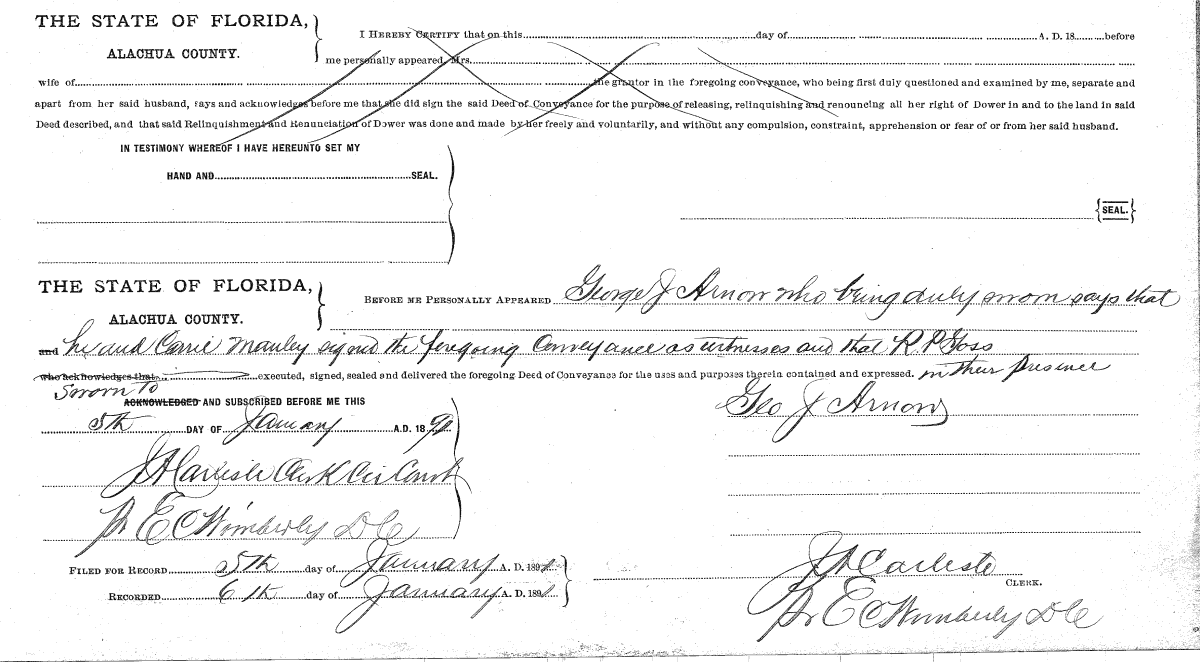 THE STATE OF FLORIDA,
ALACHUA COUNTY.
I HEREBY CERTIFY that on this day of A. D. 18 before
me personally appeared, Mrs.
wife of the grantor in the foregoing conveyance, who being first duly questioned and examined by me, separate and
apart from her said husband, says and acknowledges before me that she did sign the said Deed of Conveyance for the purpose of releasing, relinquishing and renouncing all her right of Dower in and to the land in said
Deed described, and that said Relinquishment and Renunciation of Dower was done and made by her freely and voluntarily, and without any compulsion, constraint, apprehension or fear of or from her said husband.
IN TESTIMONY WHEREOF I HAVE HEREUNTO SET MY
HAND AND SEAL.
SEAL.
THE STATE OF FLORIDA,
ALACHUA COUNTY.
BEFORE ME PERSONALLY APPEARED George J Arnow who being duly sworn says that
and he and Carrie Manley signed the foregoing Conveyance as witnesses and that R. P. Goss
who acknowledges that executed, signed, sealed and delivered the foregoing Deed of Conveyance for the uses and purposes therein contained and expressed. in their presence
Sworn to
ACKNOWLEDGED AND SUBSCRIBED BEFORE ME THIS
5th DAY OF January A.D. 18
Geo J Arnow
J A Carlisle Clerk Cir Court
Pr E C Wimberly D C
FILED FOR RECORD 5th day of January A. D. 189
RECORDED 6th day of January A. D. 189
J A Carlisle
CLERK.
Pr E C Wimberly D C